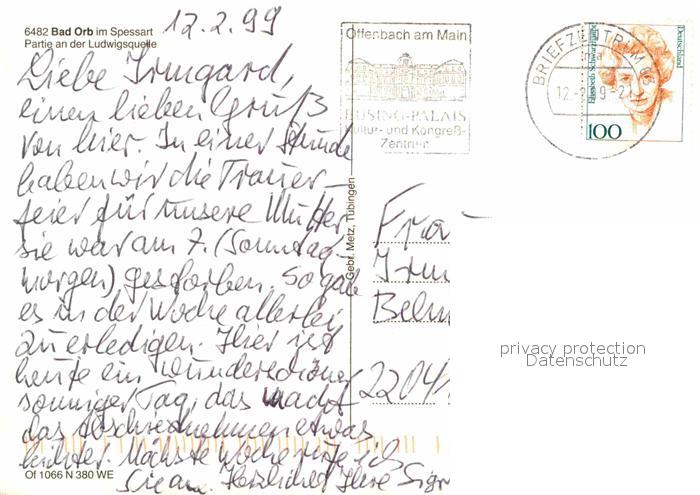 12.2.99
6482 Bad Orb im Spessart
Partie an der Ludwigsquelle
Liebe Irmgard,
einen lieben Gruß
von hier. In einer Stunde
haben wir die Trauer-
feier für unsere Mutter
sie war am 7. (Sonntag-
morgen) gestorben. So gab
es in der Woche allerlei
zu erledigen. Hier ist
heute ein wunderschöner
sonniger Tag, das macht
das Abschiednehmen etwas
leichter. Nächste Woche rufe ich
Sie an. Herzlichst Ihre Sigr
Of 1066 N 380 WE
Gebr. Metz, Tübingen
Offenbach am Main
BÜSING-PALAIS
Kultur- und Kongreß-
Zentrum
BRIEFZENTRUM 63
12.-2.99-21
Deutschland
100
Frau
Irm
22041
privacy protection
Datenschutz